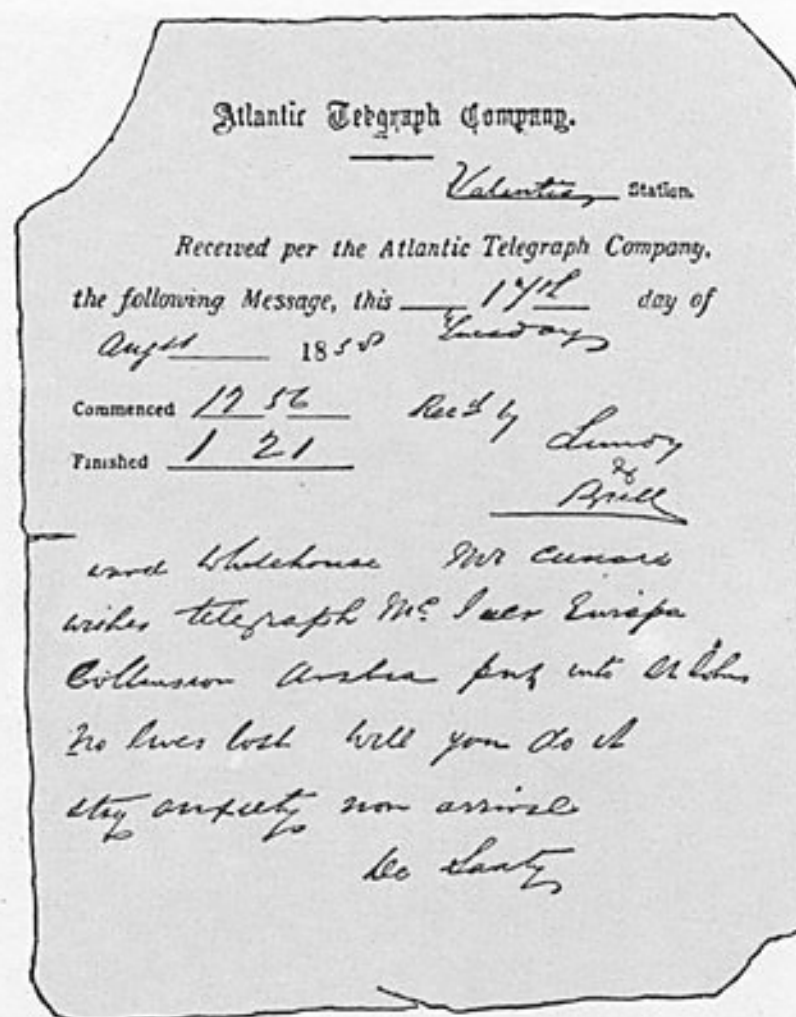 Atlantic Telegraph Company.
Valentia Station.
Received per the Atlantic Telegraph Company,
the following Message, this 17th day of
Augst 1858 Tuesday
Commenced 12 56 Recd by
Finished 1 21
Whitehouse Mr Cunard
wishes telegraph Mc Iver Europa
Collision Arabia put into St Johns
no lives lost will you do it
stay anxiety non arrival
De Sauty